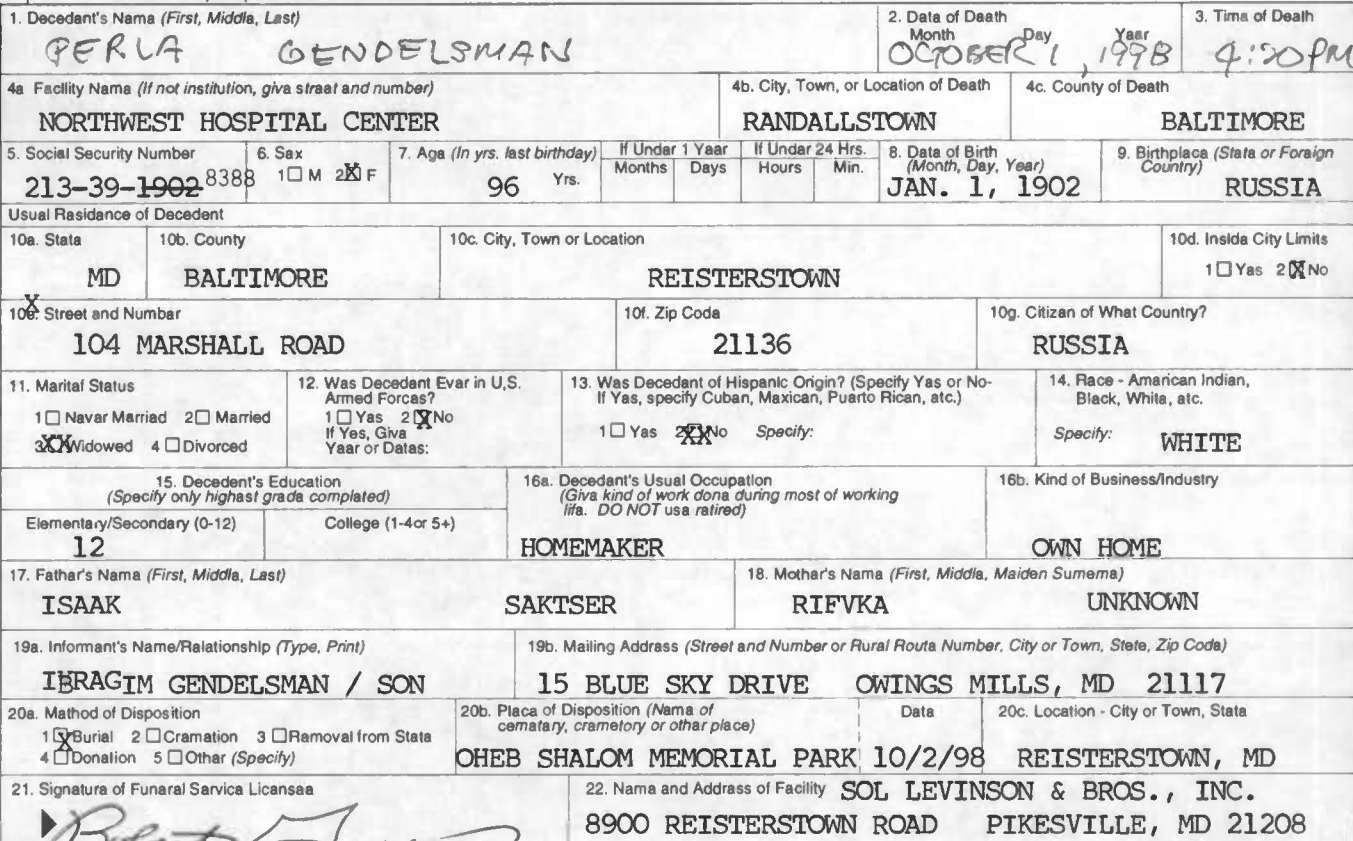 1. Decedant's Name (First, Middla, Last)
PERLA GENDELSMAN
2. Data of Daath
Month Day Yaar
OCTOBER 1, 1998
3. Tima of Death
4:20 PM
4a Facllity Nama (If not institution, giva straat and number)
NORTHWEST HOSPITAL CENTER
4b. City, Town, or Location of Death
RANDALLSTOWN
4c. County of Death
BALTIMORE
5. Social Security Number
213-39-1902 8388
6. Sax
1☐ M 2☒ F
7. Aga (In yrs. last birthday)
96 Yrs.
If Undar 1 Year
Months Days
If Undar 24 Hrs.
Hours Min.
8. Data of Birth
(Month, Day, Year)
JAN. 1, 1902
9. Birthplaca (Stata or Foraign
Country)
RUSSIA
Usual Rasidance of Decedent
10a. Stata
MD
10b. County
BALTIMORE
10c. City, Town or Location
REISTERSTOWN
10d. Insida City Limits
1☐ Yas 2☒ No
10e. Street and Numbar
104 MARSHALL ROAD
10f. Zip Coda
21136
10g. Citizan of What Country?
RUSSIA
11. Marital Status
1☐ Navar Marriad 2☐ Married
3☒ Widowed 4☐ Divorced
12. Was Decedant Evar in U.S.
Armed Forcas?
1☐ Yas 2☒ No
If Yes, Giva
Yaar or Datas:
13. Was Decedant of Hispanic Origin? (Specify Yas or No-
If Yas, specify Cuban, Maxican, Puarto Rican, atc.)
1☐ Yas 2☒ No Specify:
14. Raca - Amarican Indian,
Black, Whita, atc.
Specify: WHITE
15. Decedent's Education
(Specify only highast grada complated)
Elementary/Secondary (0-12)
12
College (1-4or 5+)
16a. Decedant's Usual Occupation
(Giva kind of work dona during most of working
lifa. DO NOT usa ratired)
HOMEMAKER
16b. Kind of Business/Industry
OWN HOME
17. Fathar's Nama (First, Middla, Last)
ISAAK SAKTSER
18. Mothar's Nama (First, Middla, Maiden Sumema)
RIFVKA UNKNOWN
19a. Informant's Nama/Ralationship (Type, Print)
IBRAGIM GENDELSMAN / SON
19b. Mailing Addrass (Street and Number or Rural Routa Number, City or Town, Stete, Zip Coda)
15 BLUE SKY DRIVE OWINGS MILLS, MD 21117
20a. Mathod of Disposition
1☒ Burial 2☐ Cramation 3☐ Ramoval from Stata
4☐ Donalion 5☐ Othar (Specify)
20b. Placa of Disposition (Nama of
cematary, crametory or othar place)
OHEB SHALOM MEMORIAL PARK
Data
10/2/98
20c. Location - City or Town, Stata
REISTERSTOWN, MD
21. Signatura of Funaral Sarvica Licansaa
22. Nama and Addrass of Facility SOL LEVINSON & BROS., INC.
8900 REISTERSTOWN ROAD PIKESVILLE, MD 21208